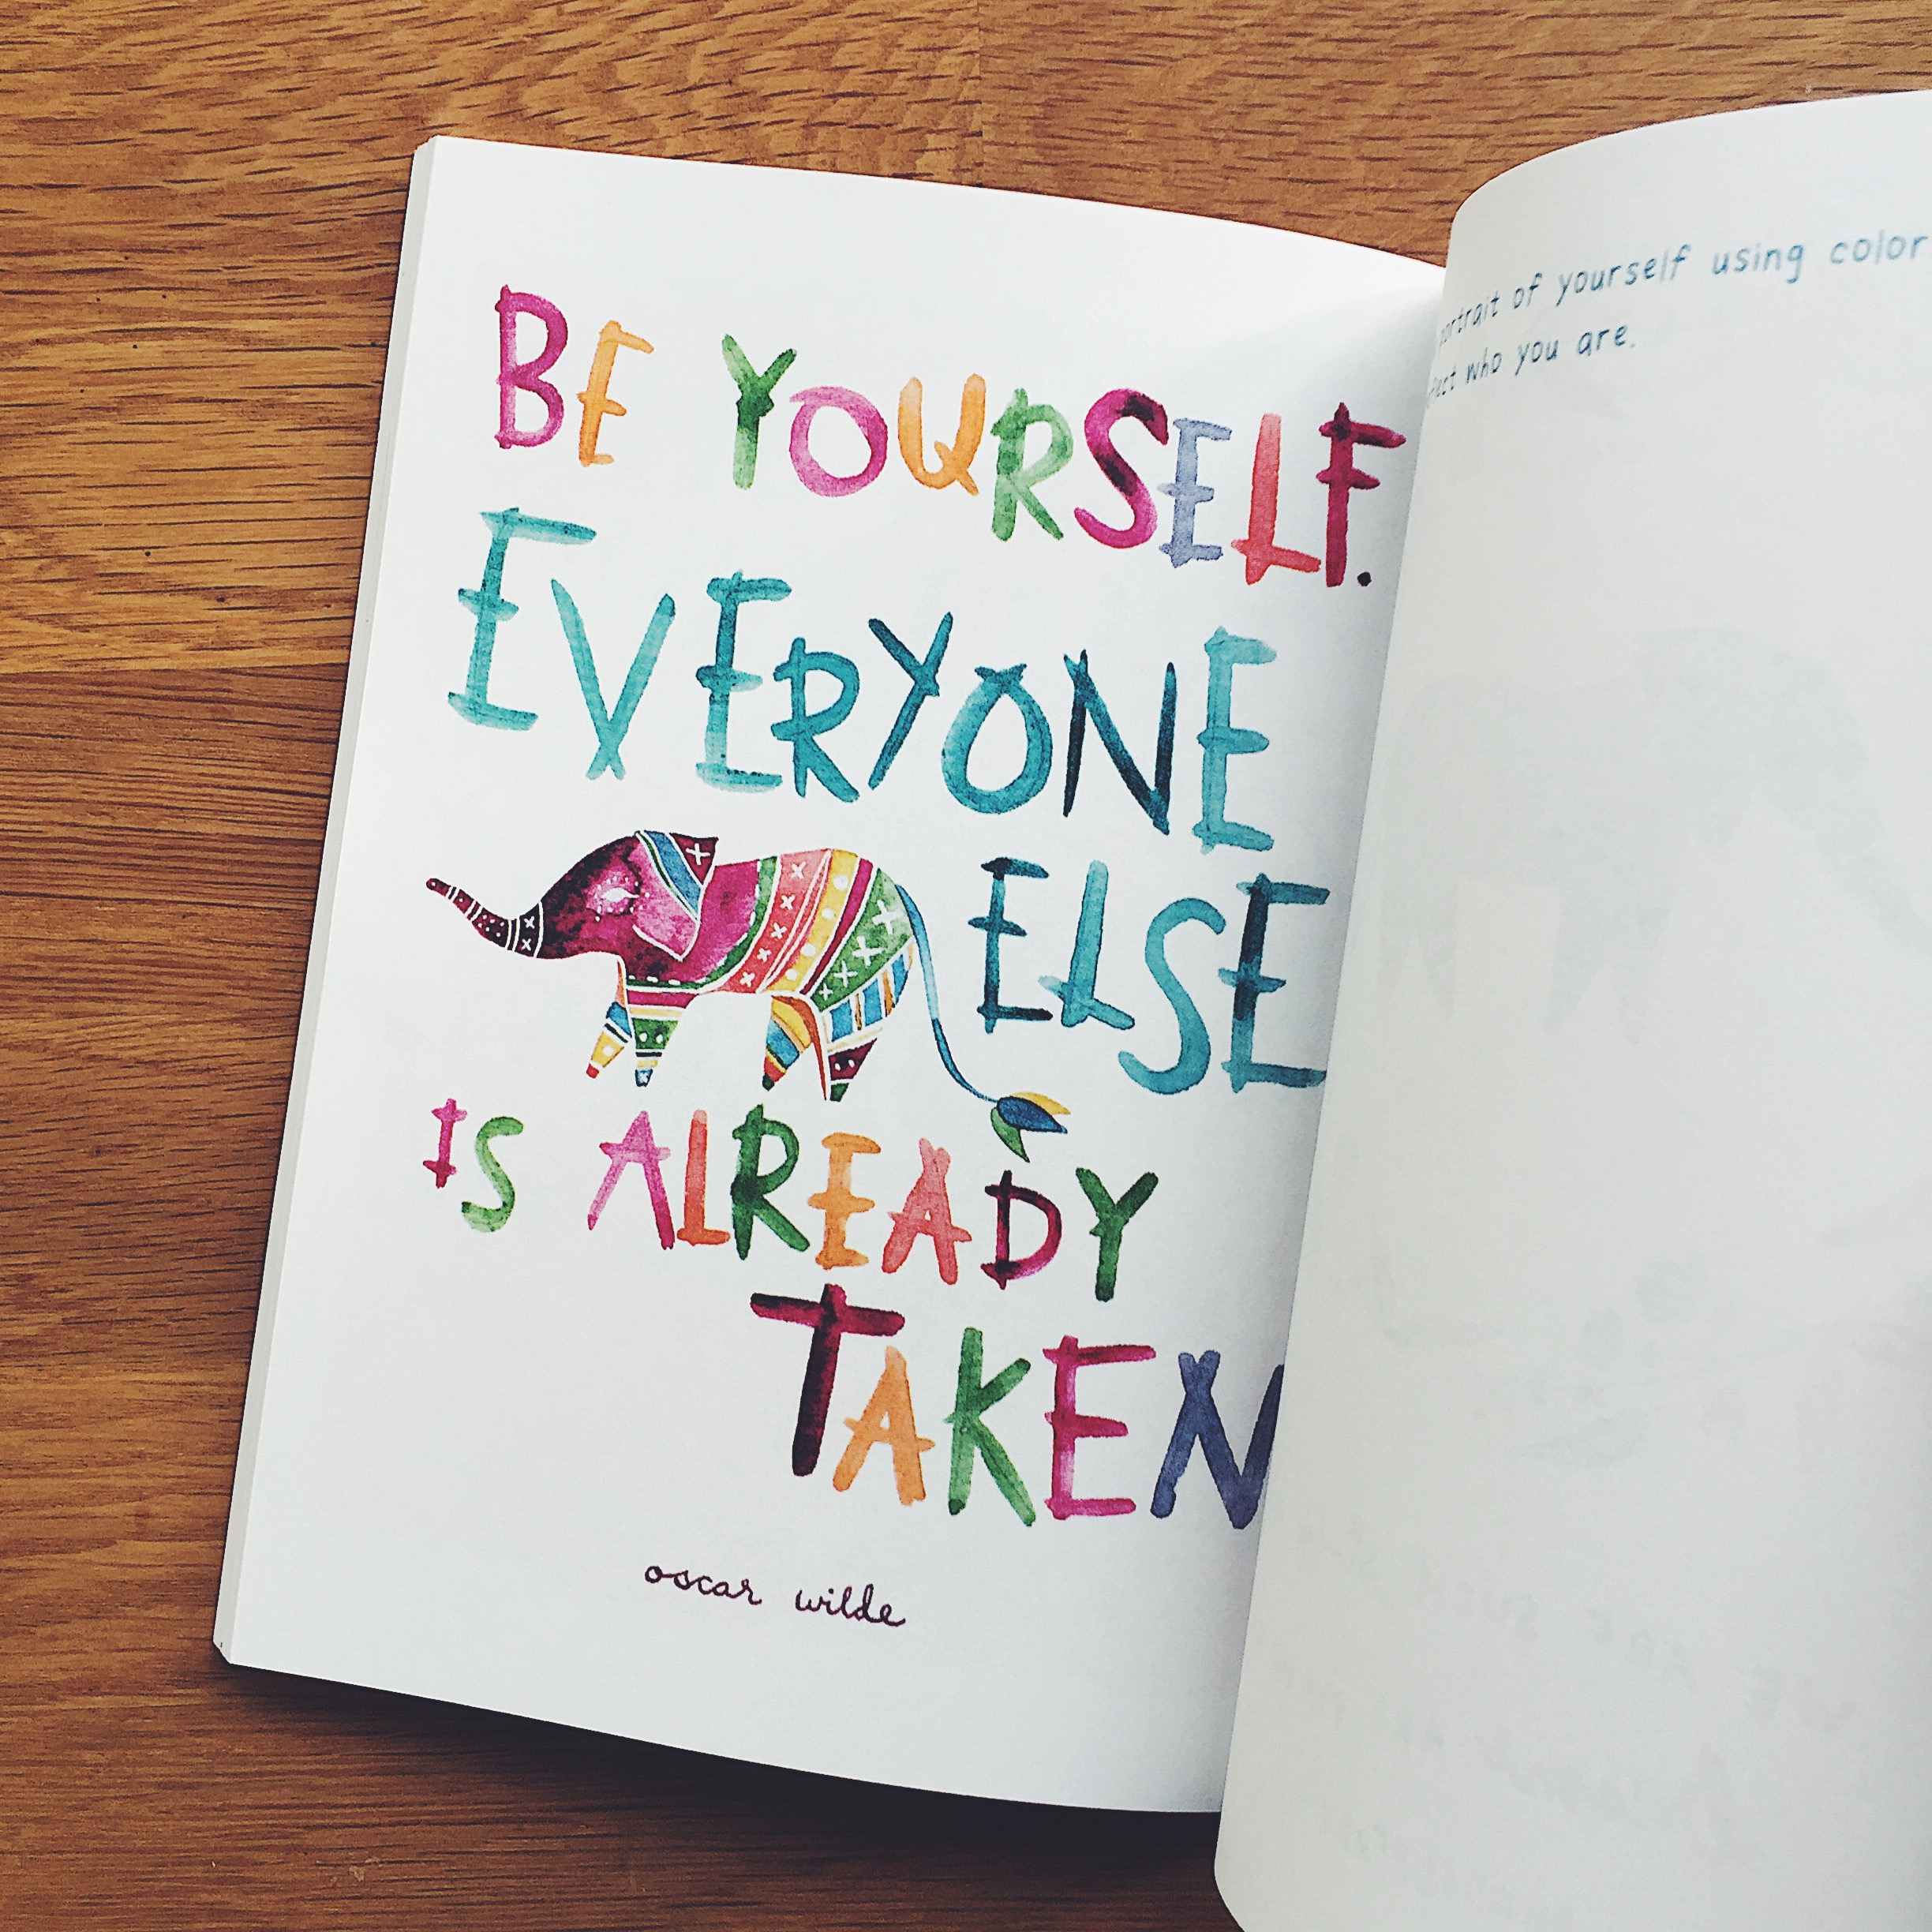 BE YOURSELF.
EVERYONE
ELSE
IS ALREADY
TAKEN
oscar wilde
of yourself using color
who you are.